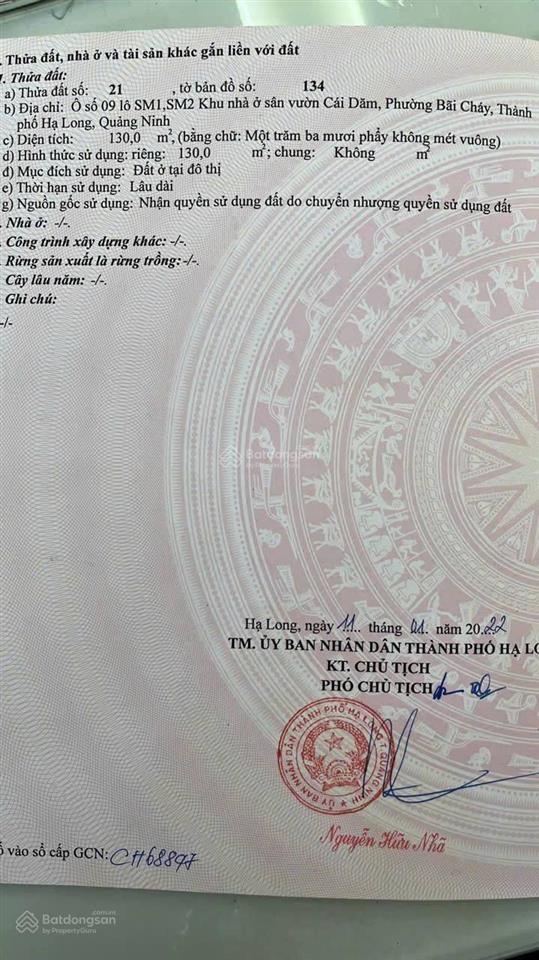 . Thửa đất, nhà ở và tài sản khác gắn liền với đất
. Thửa đất:
a) Thửa đất số: 21 , tờ bản đồ số: 134
b) Địa chỉ: Ô số 09 lô SM1,SM2 Khu nhà ở sân vườn Cái Dăm, Phường Bãi Cháy, Thành
phố Hạ Long, Quảng Ninh
c) Diện tích: 130,0 m², (bằng chữ: Một trăm ba mươi phẩy không mét vuông)
d) Hình thức sử dụng: riêng: 130,0 m²; chung: Không m²
đ) Mục đích sử dụng: Đất ở tại đô thị
e) Thời hạn sử dụng: Lâu dài
g) Nguồn gốc sử dụng: Nhận quyền sử dụng đất do chuyển nhượng quyền sử dụng đất
. Nhà ở: -/-.
. Công trình xây dựng khác: -/-.
. Rừng sản xuất là rừng trồng: -/-.
Cây lâu năm: -/-.
Ghi chú:
-/-
Batdongsan
by PropertyGuru
Hạ Long, ngày 11.. tháng 01. năm 20.22
TM. ỦY BAN NHÂN DÂN THÀNH PHỐ HẠ LO
KT. CHỦ TỊCH
PHÓ CHỦ TỊCH
ỦY BAN NHÂN DÂN THÀNH PHỐ HẠ LONG T. QUẢNG NINH
Nguyễn Hữu Nhã
ố vào sổ cấp GCN: CH68897
Batdongsan.com.vn
by PropertyGuru